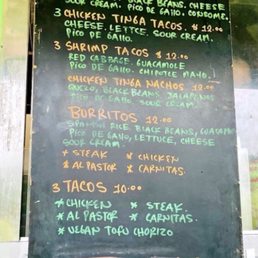 BLACK BEANS, CHEESE
SOUR CREAM. PICO DE GALLO. CONSOME.
3 CHICKEN TINGA TACOS. $ 12.00
CHEESE. LETTCE. SOUR CREAM.
PICO DE GALLO.
3 SHRIMP TACOS $ 12.00
RED CABBAGE. GUACAMOLE
PICO DE GALLO. CHIPOTLE MAYO.
CHICKEN TINGA NACHOS $ 12.00
QUESO, BLACK BEANS, JALAPEÑOS
PICO DE GALLO, SOUR CREAM
BURRITOS 12.00
SPANISH RICE, BLACK BEANS, GUACAMOLE
PICO DE GALLO, LETTUCE, CHEESE
SOUR CREAM.
* STEAK * CHICKEN
* AL PASTOR * CARNITAS.
3 TACOS 10.00
* CHICKEN * STEAK
* AL PASTOR * CARNITAS.
* VEGAN TOFU CHORIZO